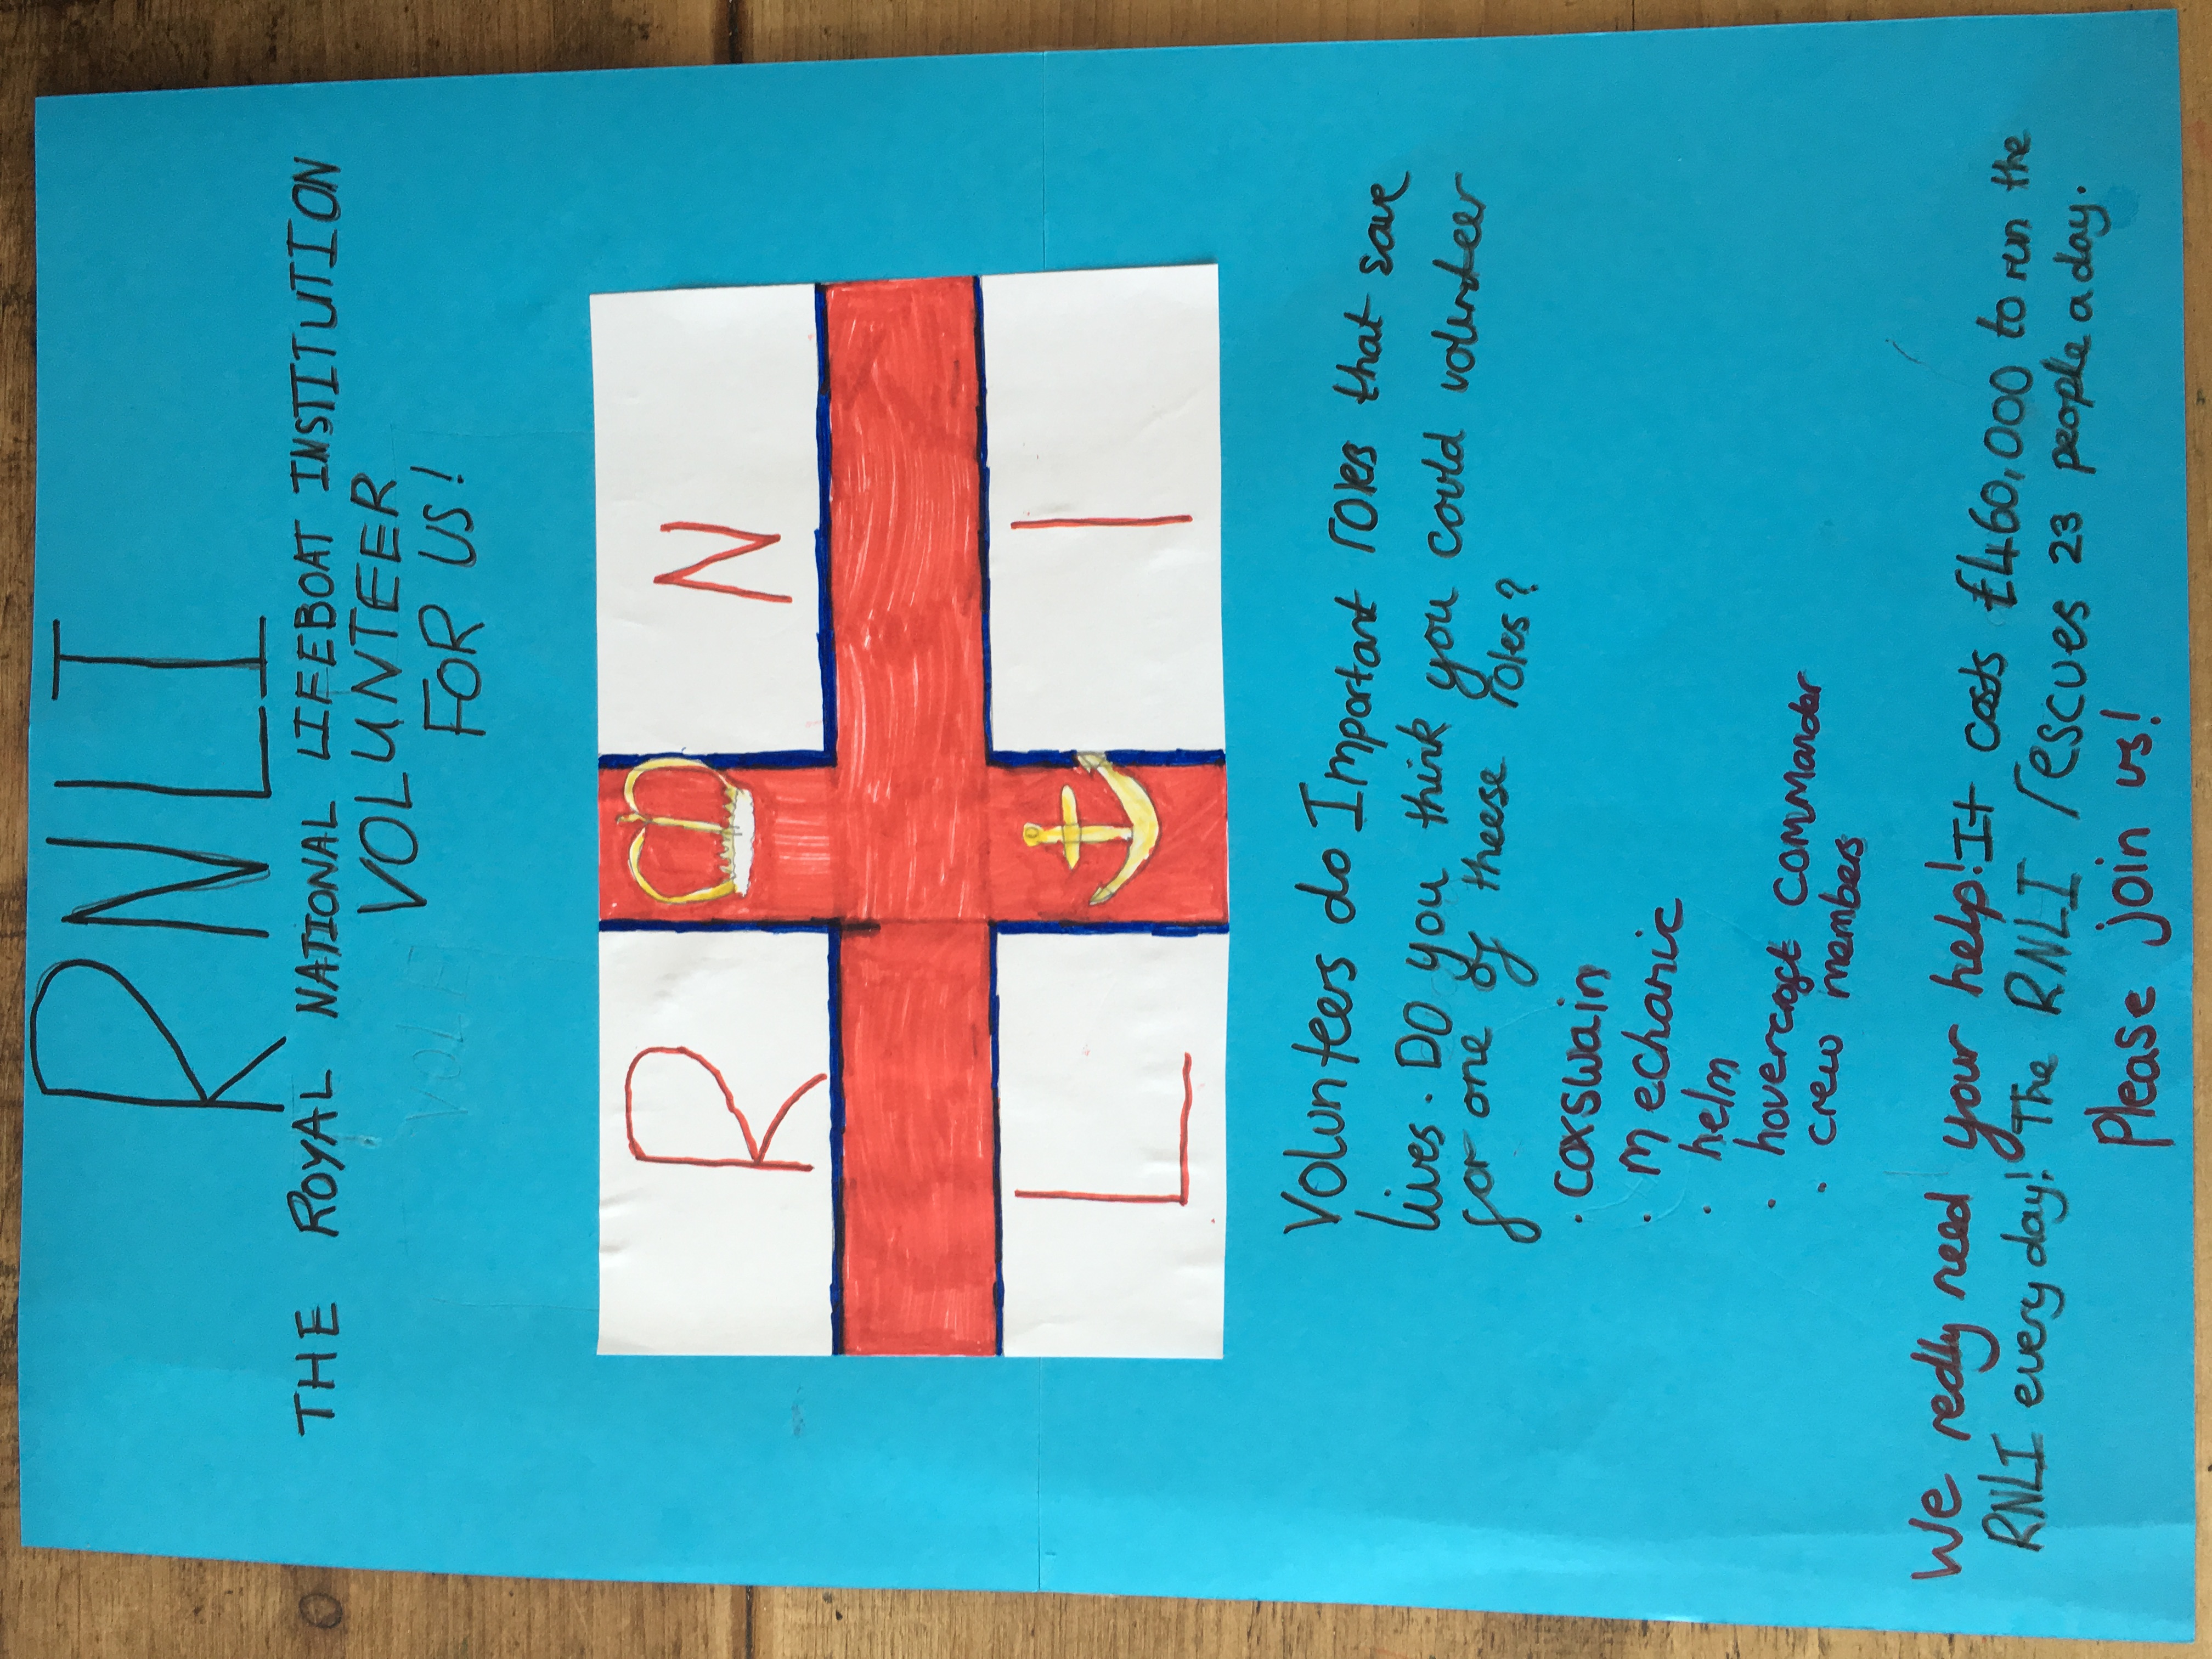 RNLI
THE ROYAL NATIONAL LIFEBOAT INSTITUTION
VOLUNTEER
FOR US!
R N
L I
Volunteers do Important roles that save
lives. Do you think you could volunteer
for one of theese roles?
· coxswain
· mechanic
· helm
· hovercraft commander
· crew members
We really need your help! It costs £460,000 to run the
RNLI every day! The RNLI rescues 23 people a day.
Please join us!